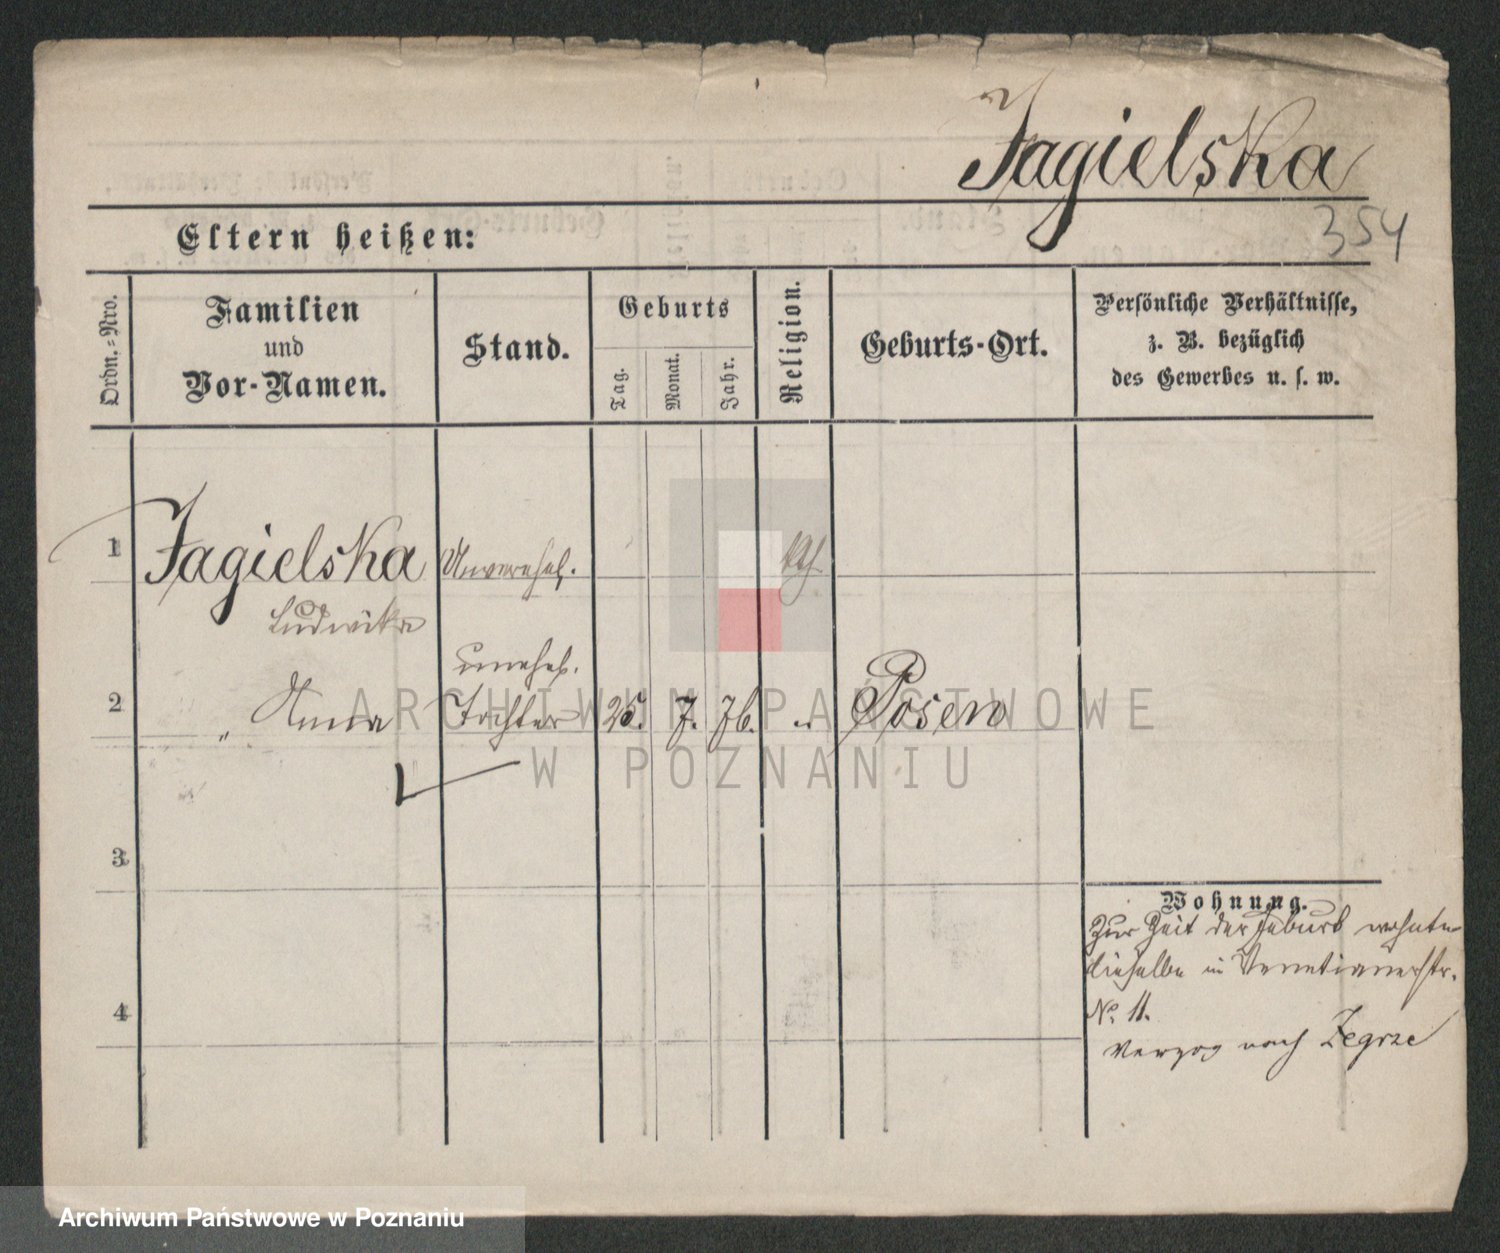 Jagielska
354
Eltern heißen:
Ordn.=Nro.
Familien
und
Vor-Namen.
Stand.
Geburts
Tag.
Monat.
Jahr.
Religion.
Geburts-Ort.
Persönliche Verhältnisse,
z. B. bezüglich
des Gewerbes u. s. w.
1 Jagielska Unverehel. kth.
Ludwika
unehel.
2 „ Anna Tochter 25. 7. 76. „ Posen
3
4
Wohnung.
Zur Zeit der Geburt wohnte
dieselbe in Venetianerstr.
No. 11.
Verzog nach Zegrze
ARCHIWUM PAŃSTWOWE
W POZNANIU
Archiwum Państwowe w Poznaniu